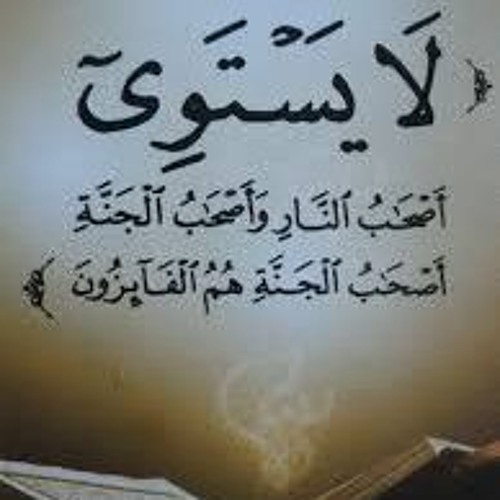 ﴿ لَا يَسْتَوِىٓ
أَصْحَٰبُ ٱلنَّارِ وَأَصْحَٰبُ ٱلْجَنَّةِ
أَصْحَٰبُ ٱلْجَنَّةِ هُمُ ٱلْفَآئِزُونَ ﴾